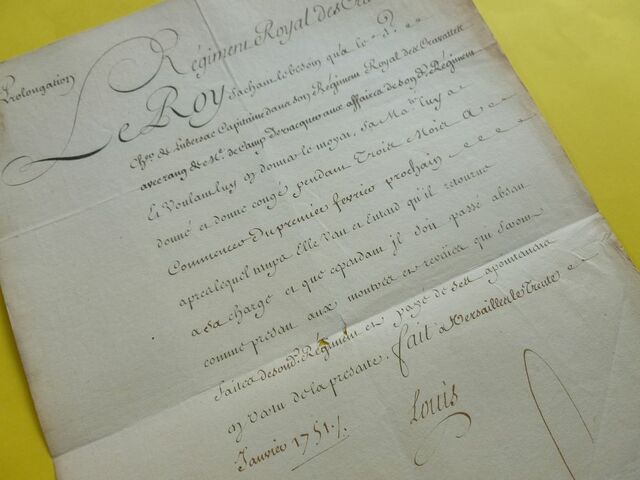 Prolongation
Régiment Royal des Cra
Le Roy Sachant le besoin qu'a le S.
Chev. de Lubersac Capitaine dans son Régiment Royal des Cravattes
avec rang de M.e de Camp De vacquer aux affaires de son d. Régiment
Et Voulant luy en donner le moyen, Sa Ma.té luy a
donné et donne congé pendant Trois Mois A
Commencer du premier fevrier prochain
apres lequel temps Elle Veut et Entend qu'il retourne
a sa charge et que cependant il soit passé absent
comme présent aux montres et reveües qui seront
faites de son d. Régiment et payé de ses apointemens
en Vertu de la presente. fait a Versailles le Trente
Janvier 1751./.
Louis